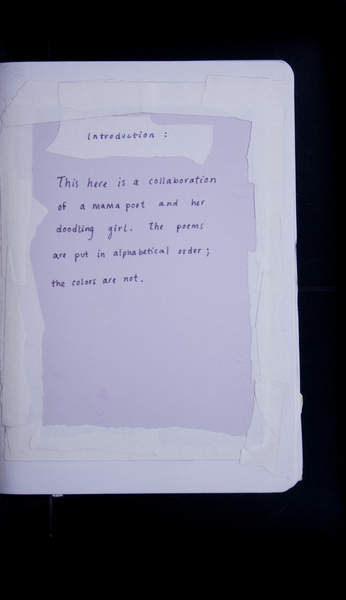 Introduction :
This here is a collaboration
of a mama poet and her
doodling girl. The poems
are put in alphabetical order ;
the colors are not.